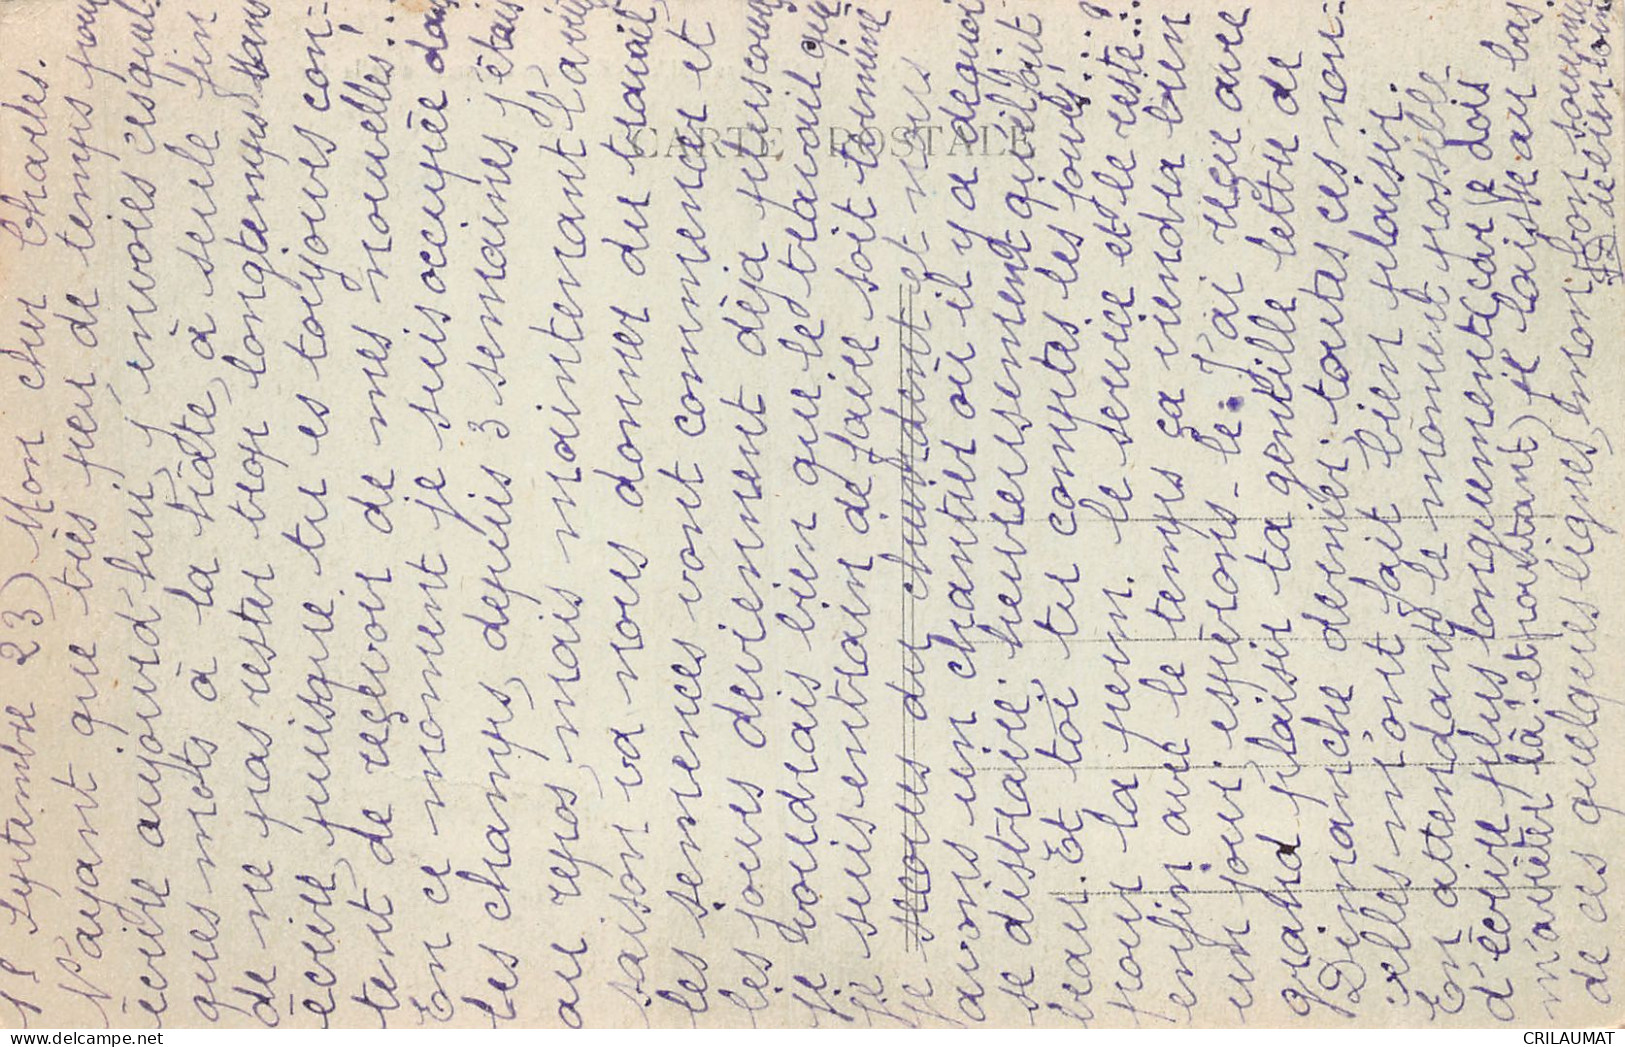 Septembre 23) Mon cher Charles.
N'ayant que très peu de temps pour
écrire aujourd'hui j'envoies ces quel-
ques mots à la hâte, à seule fin
de ne pas rester trop longtemps sans
écrire, puisque tu es toujours con-
tent de reçevoir de mes nouvelles!..
En ce moment je suis occupée dans
les champs, depuis 3 semaines j'étais
au repos, mais maintenant l'arrière
saison va nous donner du travail,
les semences vont commencer et
les jours deviennent déja plus courts
je voudrais bien que le travail que
je suis entrain de faire soit terminé
je nous
avons un chantier où il y a de quoi
se distraire: heureusement qu'il fait
beau. Et toi tu comptes les jours....?
pour la perm. le service et le reste...
enfin avec le temps ça viendra bien
un jour. espérons-le. J'ai reçu avec
grand plaisir ta gentille lettre de
Dimanche dernier; toutes ces nou-
velles m'ont fait bien plaisir.
En attendant le moment possible
d'écrire plus longuement (car je dois
m'arrêter là, et pourtant) je laisse au bas
de ces quelques lignes, mon bon souvenir
CARTE POSTALE
CRILAUMAT